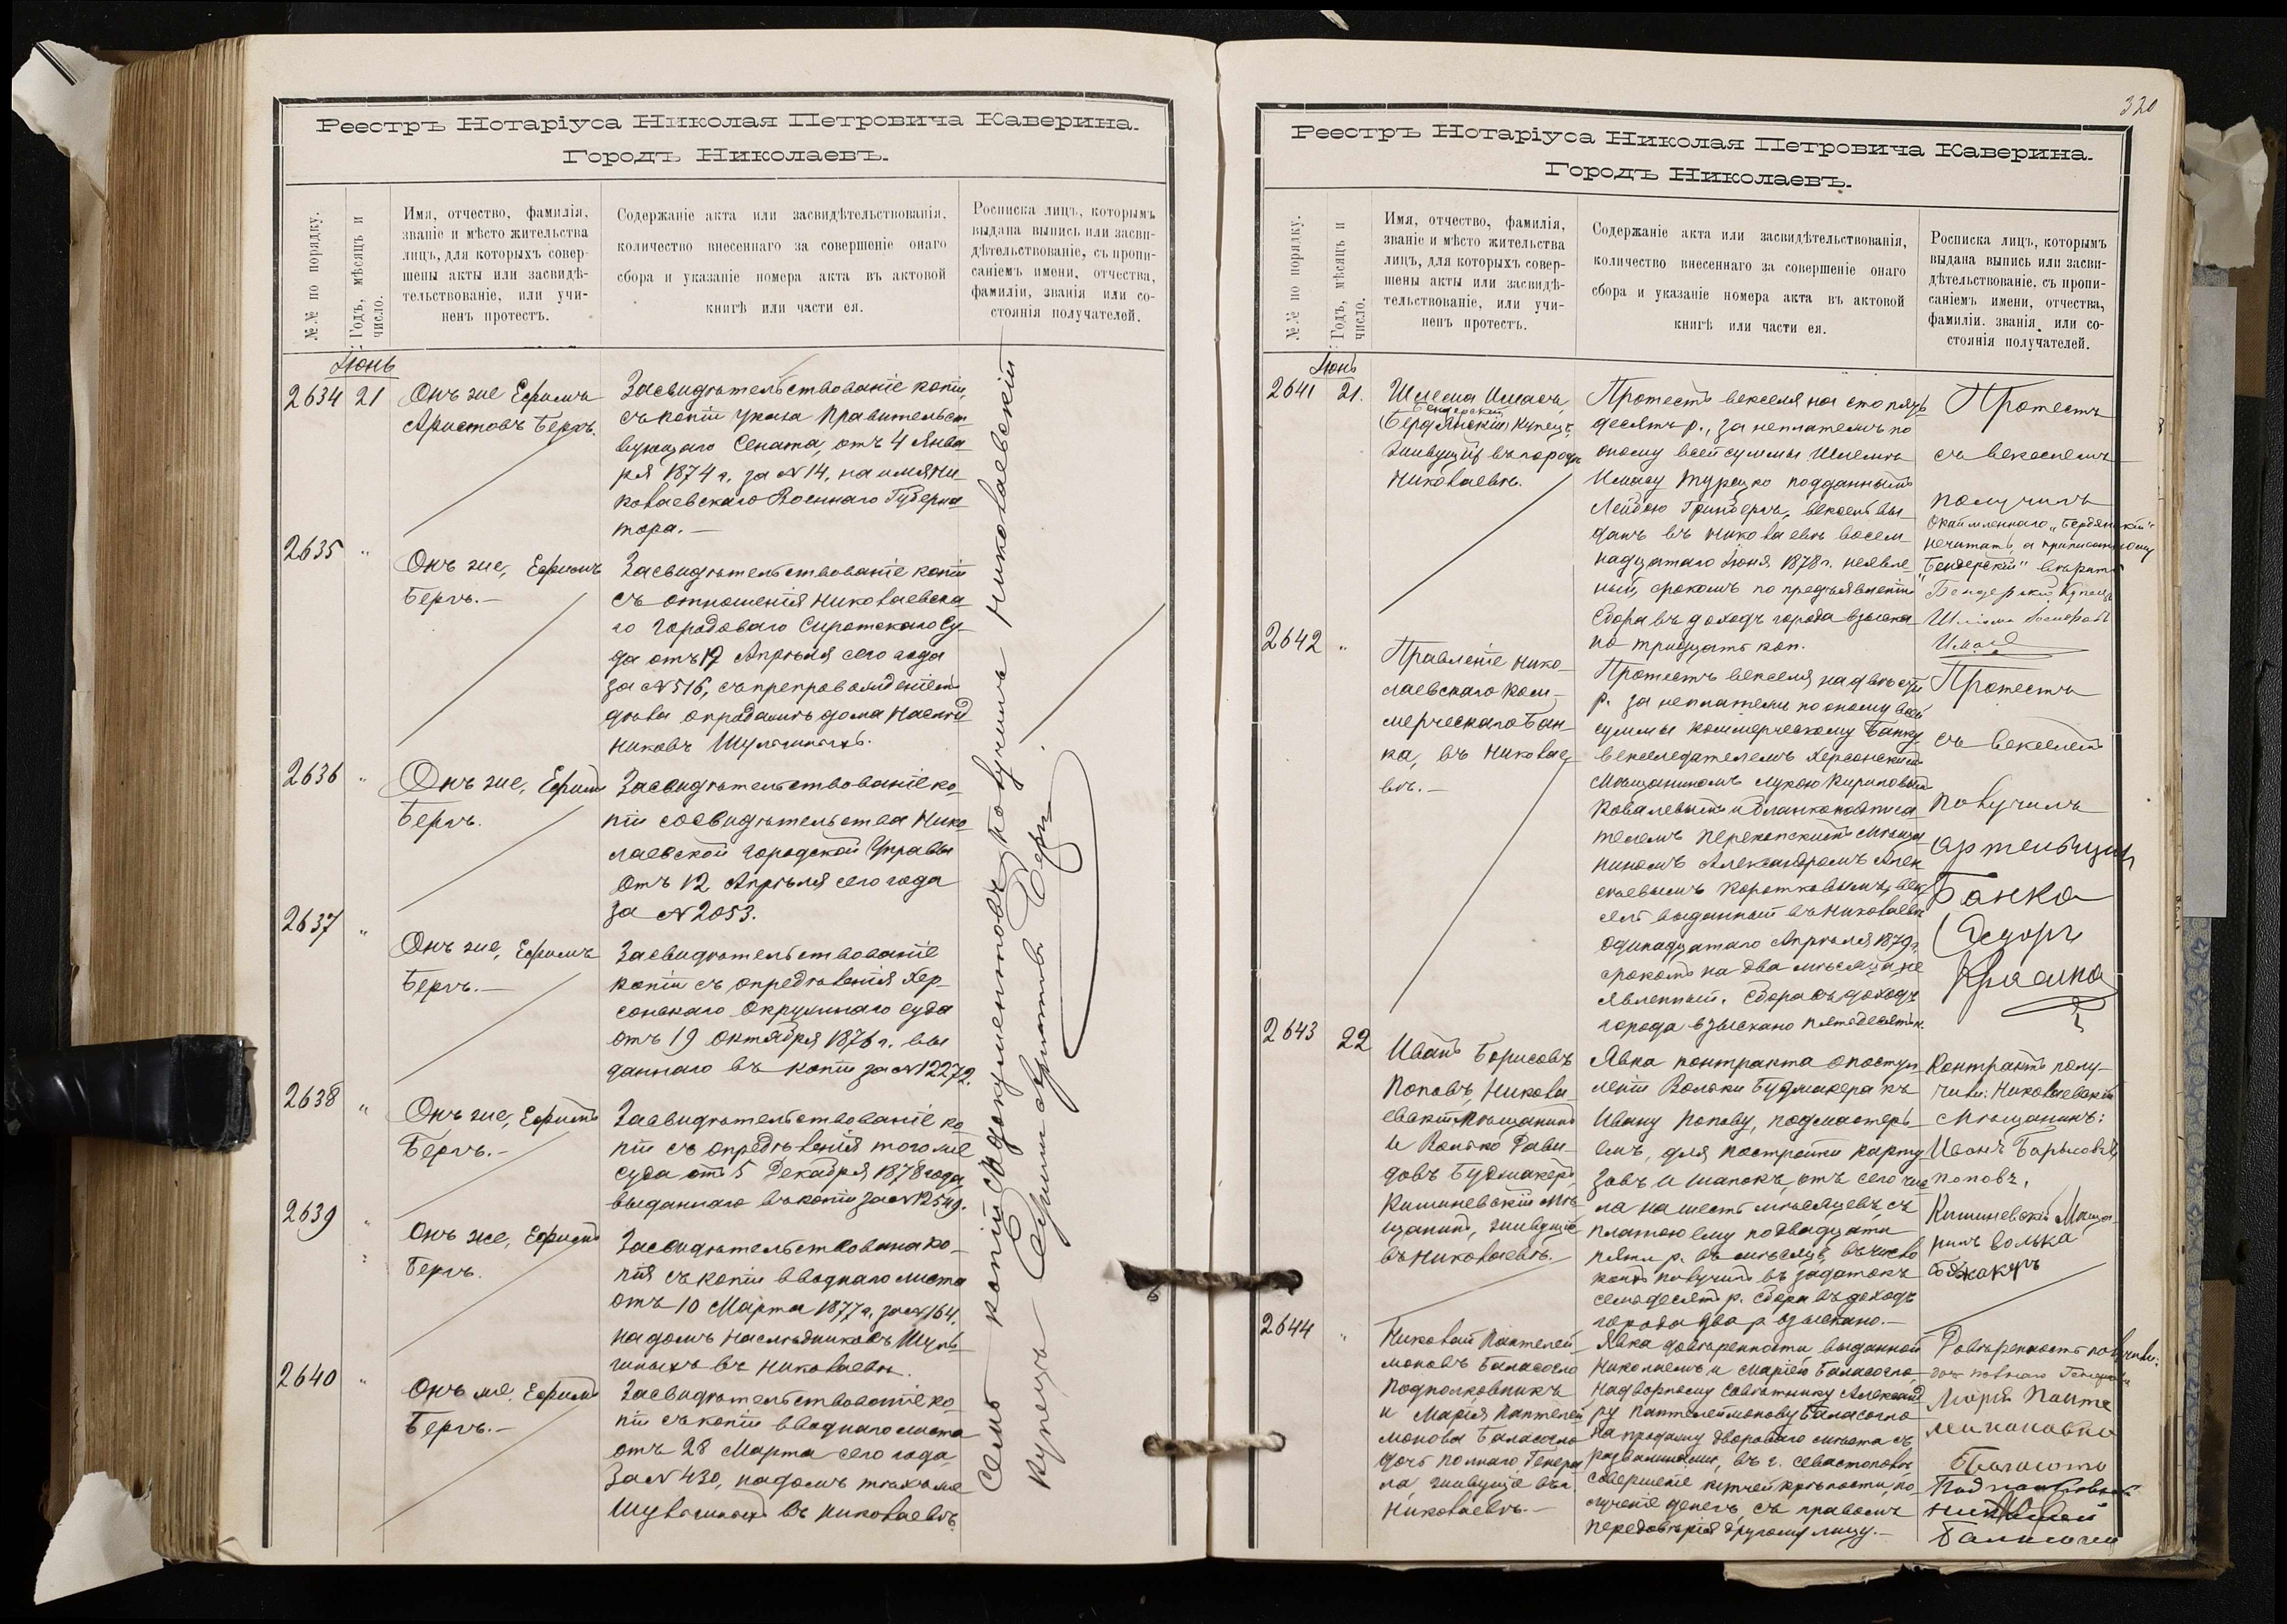 Реестръ Нотаріуса Николая Петровича Каверина.
Городъ Николаевъ.
№.№ по порядку.
Годъ, мѣсяцъ и
число.
Имя, отчество, фамилія,
званіе и мѣсто жительства
лицъ, для которыхъ совер-
шены акты или засвидѣ-
тельствованіе, или учи-
ненъ протестъ.
Содержаніе акта или засвидѣтельствованія,
количество внесеннаго за совершеніе онаго
сбора и указаніе номера акта въ актовой
книгѣ или части ея.
Росписка лицъ, которымъ
выдана выпись или засви-
дѣтельствованіе, съ пропи-
саніемъ имени, отчества,
фамиліи, званія или со-
стоянія получателей.
Іюнь
2634 21
Онъ же Ефимъ
Аристовъ Бергъ.
Засвидѣтельствованіе копіи,
съ копіи указа Правительст
вующаго Сената, отъ 4 Янва
ря 1874 г. за № 14, на имя Ни-
колаевскаго Военнаго Губерна
тора.—
2635 "
Онъ же, Ефимъ
Бергъ.—
Засвидѣтельствованіе копіи
съ отношенія Николаевска
го Городоваго Сиротскаго Су-
да отъ 17 Апрѣля сего года
за № 516, съ препровожденіемъ
дома Наслѣд
никовъ
2636 "
Онъ же, Ефимъ
Бергъ.
Засвидѣтельствованіе ко-
піи свидѣтельства Нико
лаевской Городской Управы
отъ 12 Апрѣля сего года
за № 2053.
2637 "
Онъ же, Ефимъ
Бергъ.—
Засвидѣтельствованіе
копіи съ опредѣленія Хер-
сонскаго Окружнаго Суда
отъ 19 Октября 1876 г. вы
даннаго въ копіи за № 12272.
2638 "
Онъ же, Ефимъ
Бергъ.—
Засвидѣтельствованіе ко
піи съ опредѣленія того же
Суда отъ 5 Декабря 1878 года
выданнаго въ копіи за № 12549.
2639 "
Онъ же, Ефимъ
Бергъ.
Засвидѣтельствована ко-
пія съ копіи вводнаго листа
отъ 10 Марта 1877 г. за № 164,
на домъ Наслѣдниковъ
въ Николаевѣ.
2640 "
Онъ же, Ефимъ
Бергъ.—
Засвидѣтельствованіе ко-
піи съ копіи вводнаго листа
отъ 28 Марта сего года
за № 430, на домъ тѣхъ же
въ Николаевѣ.
Семь копій съ документовъ получилъ Николаевскій
Купецъ Ефимъ Аристовъ Бергъ
320
Реестръ Нотаріуса Николая Петровича Каверина.
Городъ Николаевъ.
№.№ по порядку.
Годъ, мѣсяцъ и
число.
Имя, отчество, фамилія,
званіе и мѣсто жительства
лицъ, для которыхъ совер-
шены акты или засвидѣ-
тельствованіе, или учи-
ненъ протестъ.
Содержаніе акта или засвидѣтельствованія,
количество внесеннаго за совершеніе онаго
сбора и указаніе номера акта въ актовой
книгѣ или части ея.
Росписка лицъ, которымъ
выдана выпись или засви-
дѣтельствованіе. съ пропи-
саніемъ имени, отчества,
фамиліи. званія. или со-
стоянія получателей.
Іюнь
2641 21.
Шлема Имасъ,
Бендерскій
(Бердянскій) Купецъ,
живущій въ городѣ
Николаевѣ.
Протестъ векселя на сто пять
десятъ р., за неплатежъ по
оному всей суммы Шлемѣ
Имасу Турецко подданнымъ
Лейбою Гринбергъ, вексель вы-
данъ въ Николаевѣ восем-
надцатаго Іюня 1878 г. неявле-
ный, срокомъ по предъявленіи
Сбора въ доходъ города взыска
но тридцать коп.
Протестъ
съ векселемъ
получилъ
"Бердянскій"
нечитать, а приписанному
"Бендерскій" вѣрить
Бендерскій Купецъ
Имасъ
2642 "
Правленіе Нико-
лаевскаго Ком-
мерческаго Бан-
ка, въ Николае-
вѣ.—
Протестъ векселя на двѣсти
р. за неплатежъ по оному всей
суммы Коммерческому Банку
векселедателемъ Херсонскимъ
Мѣщаниномъ Лукою Кириловымъ
Ковалевымъ и бланконадписа
телемъ Перекопскимъ Мѣща
ниномъ Александромъ Алек
сѣевымъ Коротковымъ, век
сель выданный въ Николаевѣ
одинадцатаго Апрѣля 1879 г.
срокомъ на два мѣсяца, не
явленный. Сбора въ доходъ
города взыскано пятьдесятъ к.
Протестъ
съ векселемъ
получилъ
артельщикъ
Банка
2643 22
Иванъ Борисовъ
Поповъ, Никола
евскій Мѣщанинъ
и Волько Дави-
довъ Будмакеръ,
Кишиневскій Мѣ
щанинъ, живущіе
въ Николаевѣ.—
Явка контракта о поступ
леніи Вольки Будмакера къ
Ивану Попову, подмастерь
емъ, для постройки карту
зовъ и шапокъ, отъ сего чис
ла на шесть мѣсяцевъ, съ
платою ему по двадцати
пяти р. въ мѣсяцъ, въ число
коихъ получилъ въ задатокъ
семьдесятъ р. Сбора въ доходъ
города два р. взыскано.—
Контрактъ полу-
чили: Николаевскій
Мѣщанинъ:
Иванъ Борысовъ
поповъ,
Кишиневскій Мѣща-
нинъ волька
2644 "
Николай Пантелей-
моновъ Баласогло
Подполковникъ
и Марія Пантелей
монова Баласогло
дочь полнаго Генера
ла, живущіе въ г.
Николаевѣ.—
Явка довѣренности, выданной
Николаемъ и Маріею Баласогло,
Надворному Совѣтнику Александ
ру Пантелеймонову Баласогло
на продажу двороваго мѣста съ
развалинами, въ г. Севастополѣ,
совершеніе купчей крѣпости, по
лученіе денегъ, съ правомъ
передовѣрія другому лицу.—
Довѣренность получили:
дочь полнаго Генерала
Марія Панте
леймоновна
Баласогло
Подполковникъ
Николай
Баласогло